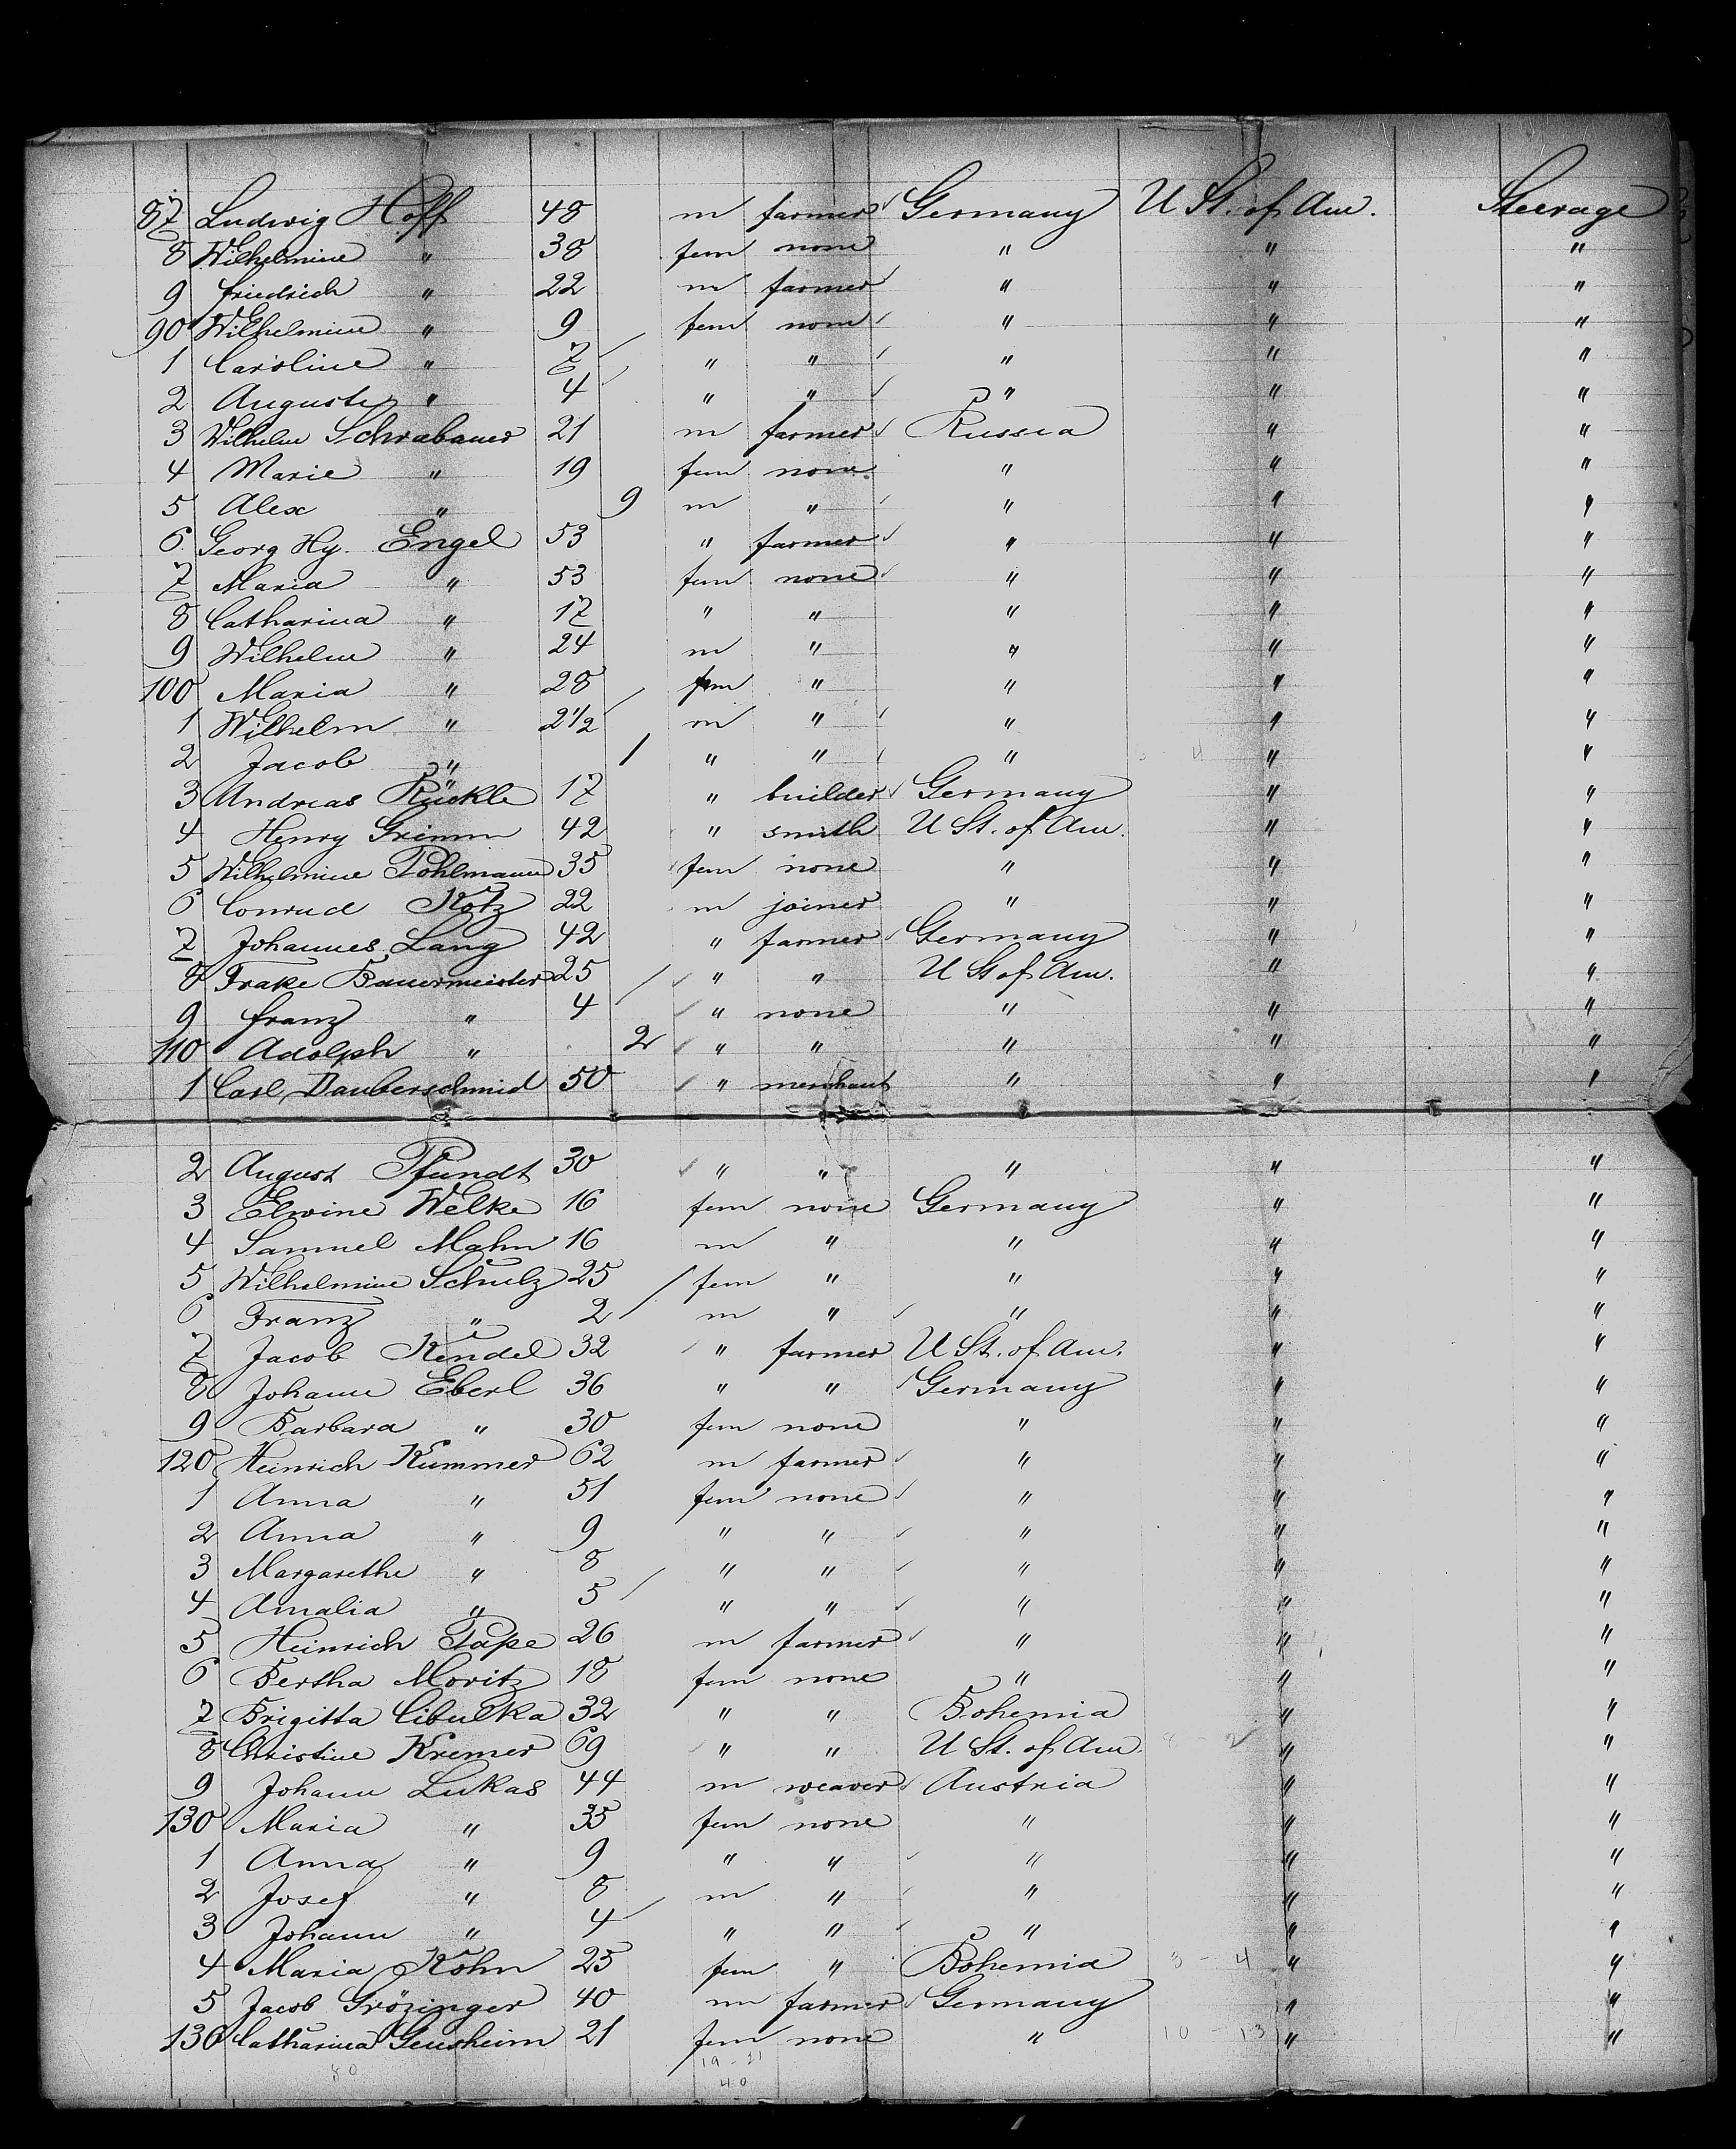 87 Ludwig Hoff 48 m farmer Germany U St. of Am. Steerage
8 Wilhelmine " 38 fem none " " "
9 Friedrich " 22 m farmer " " "
90 Wilhelmine " 9 fem none " " "
1 Caroline " 7 " " " " "
2 Auguste " 4 " " " " "
3 Wilhelm Schrabauer 21 m farmer Russia " "
4 Marie " 19 fem none " " "
5 Alex " 9 m " " " "
6 Georg Hy. Engel 53 " farmer " " "
7 Maria " 53 fem none " " "
8 Catharina " 17 " " " " "
9 Wilhelm " 24 m " " " "
100 Maria " 28 fem " " " "
1 Wilhelm " 2 1/2 m " " " "
2 Jacob " 1 " " " " "
3 Andreas Rückle 17 " builder Germany " "
4 Henry Grimm 42 " smith U St. of Am. " "
5 Wilhelmine Pohlmann 35 fem none " " "
6 Conrad Kotz 22 m joiner " " "
7 Johannes Lang 42 " farmer Germany " "
8 Frake Bauermeister 25 " " U St of Am. " "
9 Franz " 4 " none " " "
110 Adolph " 2 " " " " "
1 Carl Dauberschmid 50 " merchant " " "
2 August Pfundt 30 " " " " "
3 Elwine Welke 16 fem none Germany " "
4 Samuel Mahn 16 m " " " "
5 Wilhelmine Schulz 25 fem " " " "
6 Franz " 2 m " " " "
7 Jacob Kendel 32 " farmer U St. of Am. " "
8 Johann Eberl 36 " " Germany " "
9 Barbara " 30 fem none " " "
120 Heinrich Kummer 62 m farmer " " "
1 Anna " 51 fem none " " "
2 Anna " 9 " " " " "
3 Margarethe " 8 " " " " "
4 Amalia " 5 " " " " "
5 Heinrich Pape 26 m farmer " " "
6 Bertha Moritz 18 fem none " " "
7 Brigitta Cibulka 32 " " Bohemia " "
8 Christine Kremer 69 " " U St. of Am. " "
9 Johann Lukas 44 m weaver Austria " "
130 Maria " 35 fem none " " "
1 Anna " 9 " " " " "
2 Josef " 8 m " " " "
3 Johann " 4 " " " " "
4 Maria Köhn 25 fem " Bohemia 3 - 4 " "
5 Jacob Grözinger 40 m farmer Germany " "
136 Catharina Gensheim 21 fem none " 10 - 13 " "
19 - 21
40